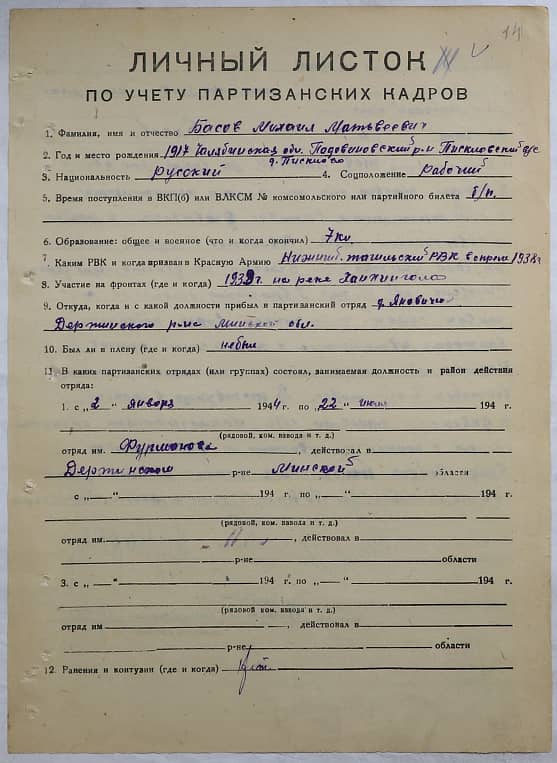 14
ЛИЧНЫЙ ЛИСТОК
ПО УЧЕТУ ПАРТИЗАНСКИХ КАДРОВ
1. Фамилия, имя и отчество Басов Михаил Матвеевич
2. Год и место рождения 1917 Челябинская обл. Подовиновский р-н Пискловский с/с
д. Писклово
3. Национальность русский 4. Соцположение рабочий
5. Время поступления в ВКП(б) или ВЛКСМ № комсомольского или партийного билета б/п.
6. Образование: общее и военное (что и когда окончил) 7 кл
7. Каким РВК и когда призван в Красную Армию Нижний-тагильский РВК 1938 г
8. Участие на фронтах (где и когда) 1939 г. на реке Халхингола
9. Откуда, когда и с какой должности прибыл в партизанский отряд д. Яковичи
Держинского р-на Минской обл.
10. Был ли в плену (где и когда) небыл
11. В каких партизанских отрядах (или группах) состоял, занимаемая должность и район действия
отряда:
1. с „2" января 1944 г. по „22" июля 194 г.
(рядовой, ком. взвода и т. д.)
отряд им. Фурманова, действовал в
Держинского р-не Минской области
с „ — " 194 г. по „ — " 194 г.
(рядовой, ком. взвода и т. д.)
отряд им. , действовал в
р-не области
3. с „ — " 194 г. по „ — " 194 г.
(рядовой, ком. взвода и т. д.)
отряд им , действовал в
р-не области
12. Ранения и контузии (где и когда) нет